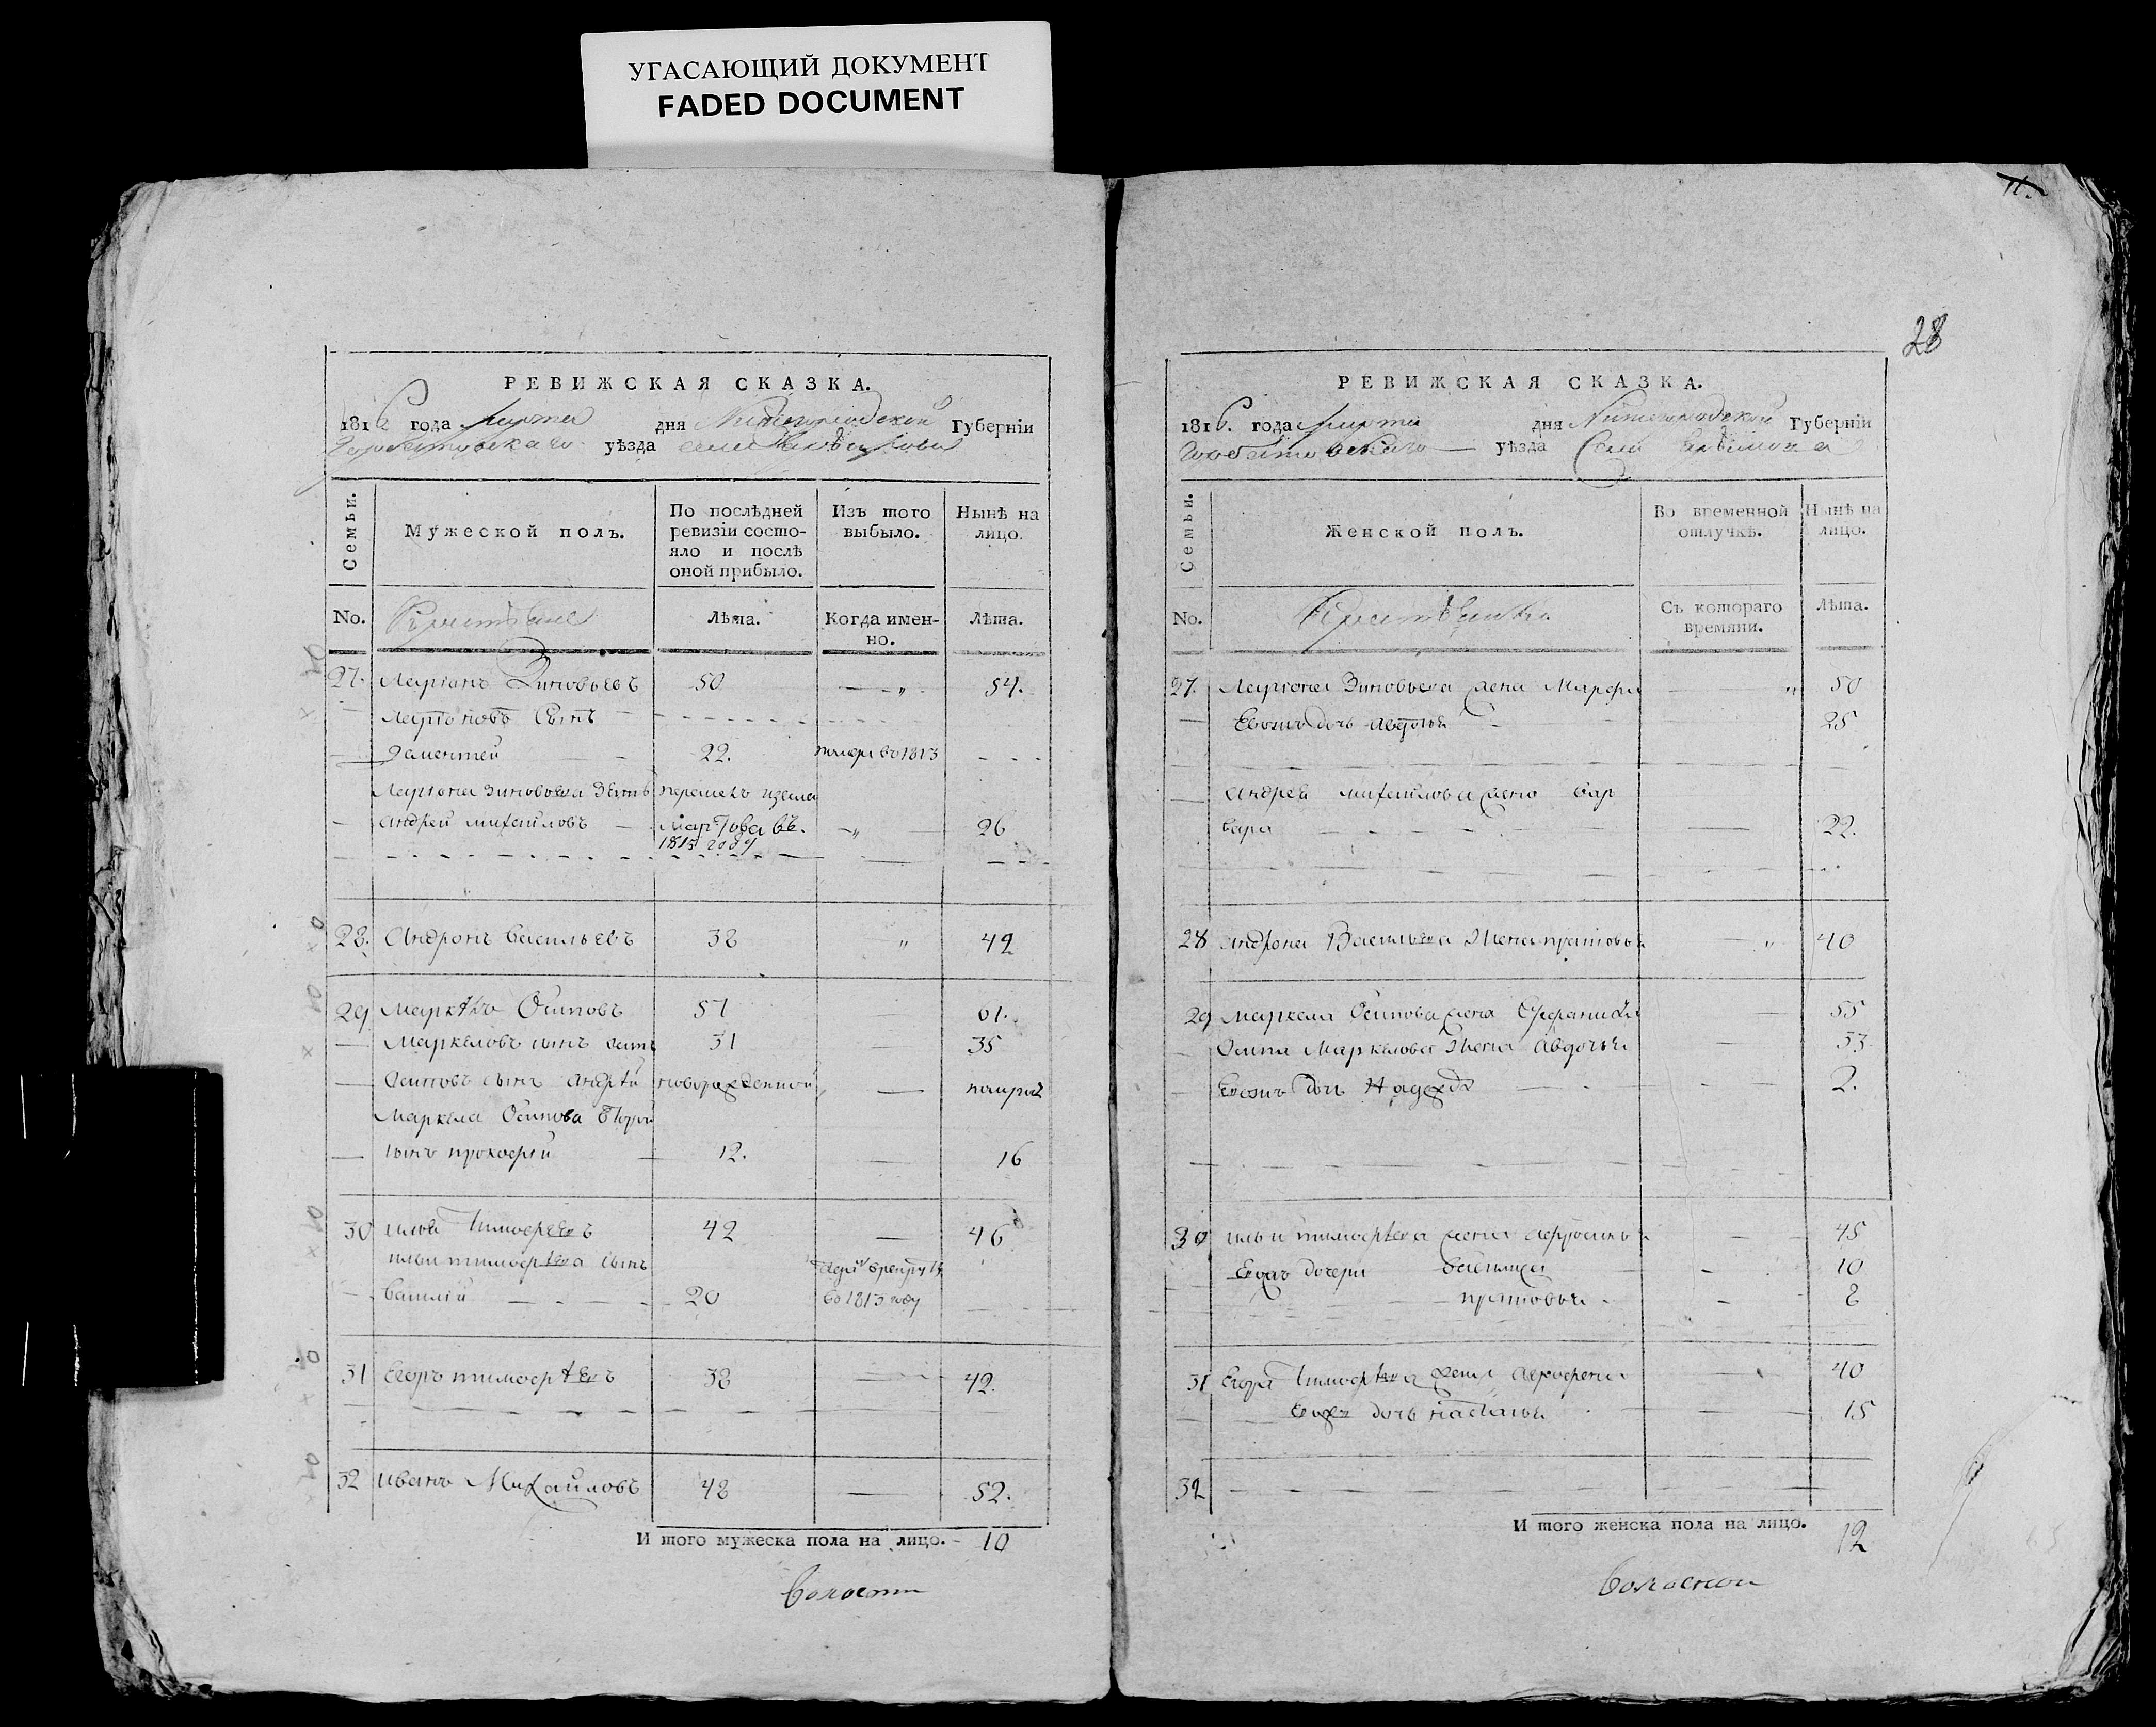 УГАСАЮЩИЙ ДОКУМЕНТ
FADED DOCUMENT
11.
28
РЕВИЖСКАЯ СКАЗКА.
1816 года марта дня Нижегородской Губерніи
Горбатовскаго уѣзда села
Семьи.
Мужеской полъ.
По послѣдней ревизіи состо-яло и послѣ оной прибыло.
Изъ того выбыло.
Нынѣ на лицо.
No.
Крестьяне
Лѣта.
Когда имен-но.
Лѣта.
27. Ларіонъ Зиновьевъ 50 — „ 54.
Ларіоновъ Сынъ
Дементей 22. помер въ 1813
Ларіона Зиновьева Зять перешелъ
Андрей михайловъ въ. — „ 26
1815 году
28. Андронъ васильевъ 38 „ 42
29 Маркелъ Осиповъ 57 — 61.
Маркеловъ сынъ осипъ 31 — 35
Осиповъ сынъ Андрей новорожденной —
Маркела Осипова второй
сынъ прокофей 12. — 16
30 илья Тимофеевъ 42 — 46
ильи тимофеева сынъ
василій 20 в 1813 году
31 Егоръ тимофеевъ 38 — 42.
32 иванъ Михайловъ 48 — 52.
И того мужеска пола на лицо. 10
волости
РЕВИЖСКАЯ СКАЗКА.
1816. года марта дня Нижегородской Губерніи
Горбатовскаго уѣзда Села
Семьи.
Женской полъ.
Во временной отлучкѣ.
Нынѣ на лицо.
No.
Крестьянки.
Съ котораго времяни.
Лѣта.
27. Ларіона Зиновьева жена Марфа „ 50
Евожъ дочь Авдотья 25
Андрея михайлова жена вар
вара — 22.
28 андрона Васильева Жена пратовья „ 40
29 маркела Осипова жена — 55
Осипа Маркелова Жена Авдотья — 33.
Евожъ дочь Надежда — 2.
30 ильи тимофеева жена — 45
Евожъ дочери василиса 10
8
31 Егора Тимофеева жена — 40
Евожъ дочь наталья — 15
32
И того женска пола на лицо. 12